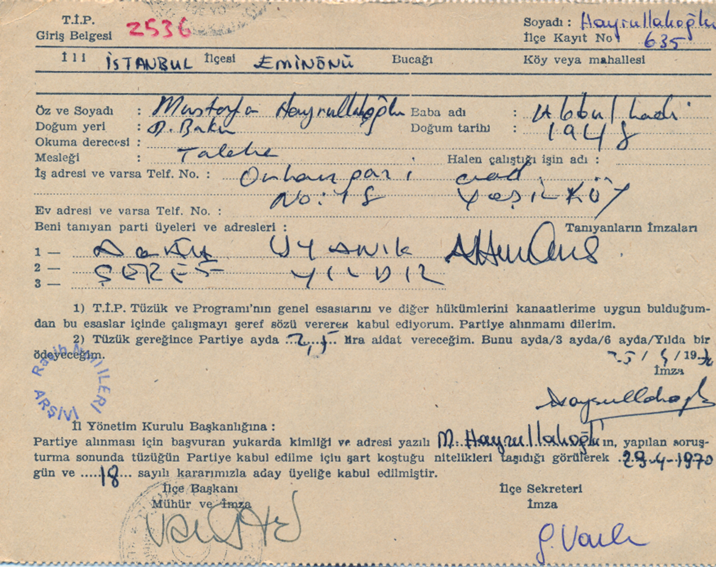 T.İ.P.
Giriş Belgesi 2536
Soyadı : Hayrullahoğlu
İlçe Kayıt No 635
İli İSTANBUL İlçesi EMİNÖNÜ Bucağı Köy veya mahallesi
Öz ve Soyadı : Mustafa Hayrullahoğlu Baba adı : Abbulhadi
Doğum yeri : D. Bakır Doğum tarihi : 1948
Okuma derecesi :
Mesleği : Talebe Halen çalıştığı işin adı :
İş adresi ve varsa Telf. No. : Orhangazi cad.
No: 18 YEŞİLKÖY
Ev adresi ve varsa Telf. No. :
Beni tanıyan parti üyeleri ve adresleri : Tanıyanların İmzaları
1 — UYANIK
2 — YILDIZ
3 —
1) T.İ.P. Tüzük ve Programı'nın genel esaslarını ve diğer hükümlerini kanaatlerime uygun bulduğum-
dan bu esaslar içinde çalışmayı şeref sözü vererek kabul ediyorum. Partiye alınmamı dilerim.
2) Tüzük gereğince Partiye ayda 2,5 lira aidat vereceğim. Bunu ayda/3 ayda/6 ayda/Yılda bir
ödeyeceğim.
İmza
Hayrullahoğlu
Rasih NURİ İLERİ
ARŞİVİ
İl Yönetim Kurulu Başkanlığına :
Partiye alınması için başvuran yukarda kimliği ve adresi yazılı M. Hayrullahoğlu'nın, yapılan soruş-
turma sonunda tüzüğün Partiye kabul edilme için şart koştuğu nitelikleri taşıdığı görülerek 29-4-1970
gün ve 18 sayılı kararımızla aday üyeliğe kabul edilmiştir.
İlçe Başkanı İlçe Sekreteri
Mühür ve İmza İmza